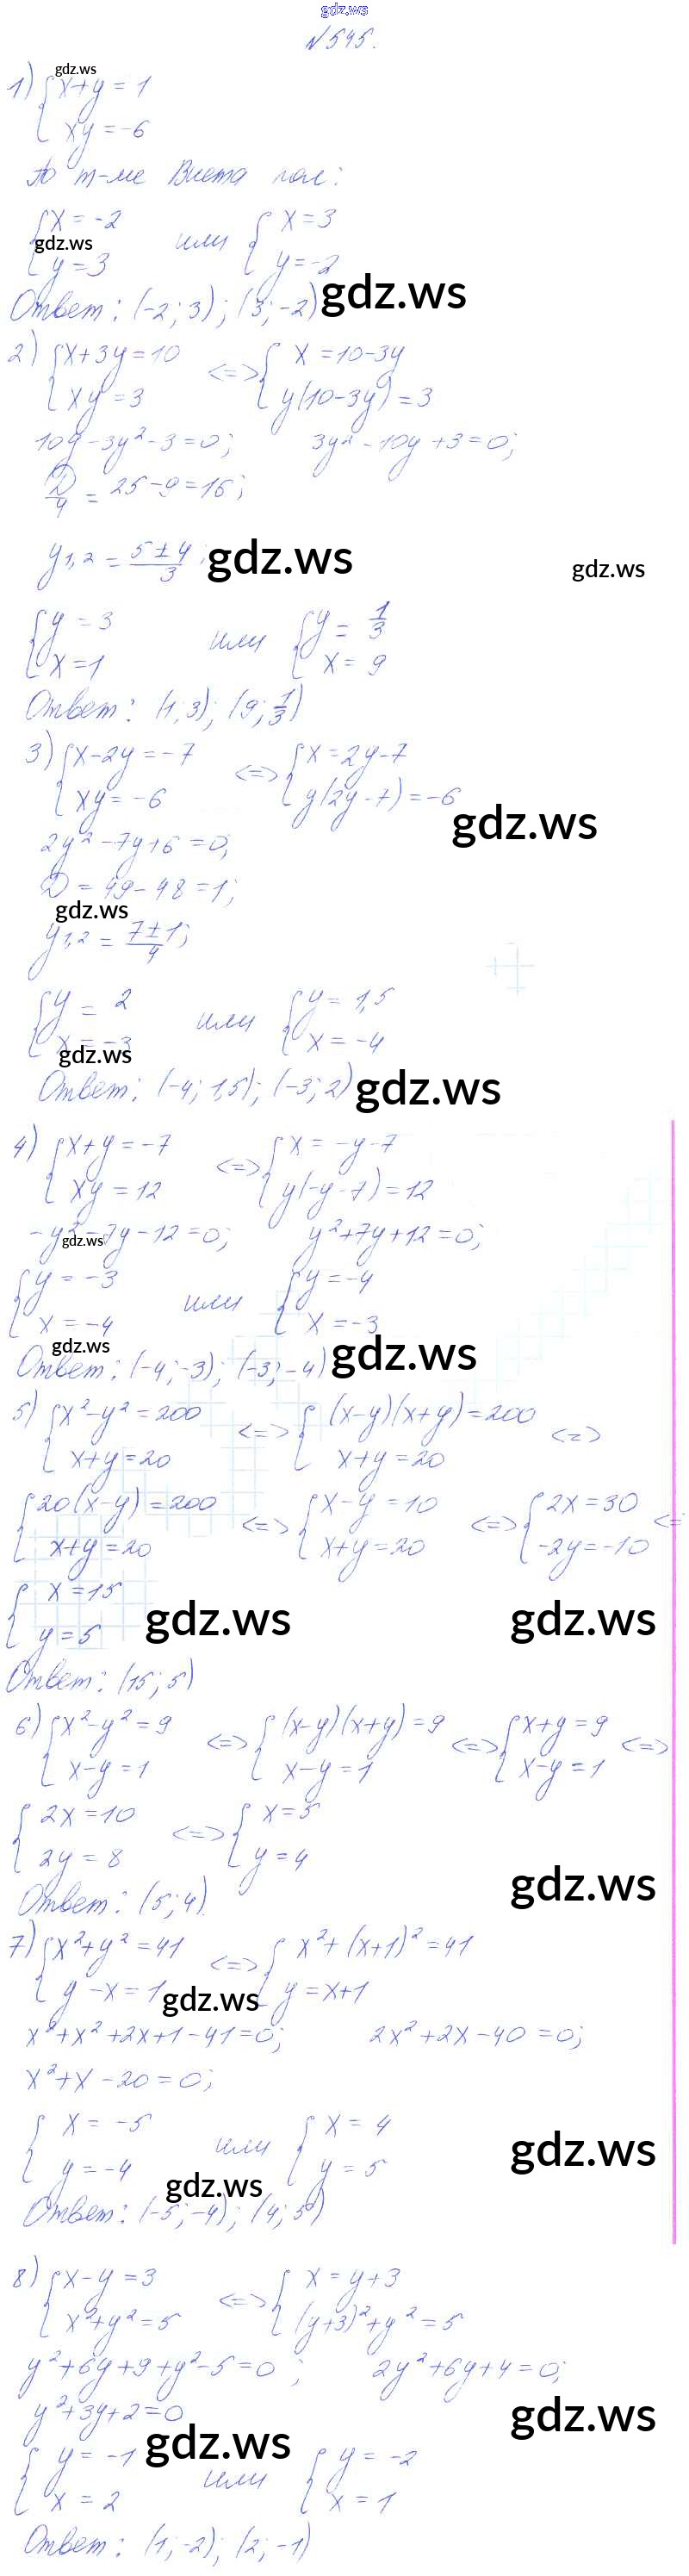 gdz.ws
№545.
gdz.ws
1) { x+y=1
xy=-6
По т-ме Виета пол:
{ x=-2 или { x=3
gdz.ws
y=3 y=-2
Ответ: (-2; 3); (3; -2) gdz.ws
2) { x+3y=10 <=> { x=10-3y
xy=3 y(10-3y)=3
10y-3y²-3=0; 3y²-10y+3=0;
D/4 = 25-9=16;
y1,2 = (5±4)/3; gdz.ws gdz.ws
{ y=3 или { y=1/3
x=1 x=9
Ответ: (1; 3); (9; 1/3)
3) { x-2y=-7 <=> { x=2y-7
xy=-6 y(2y-7)=-6
gdz.ws
2y²-7y+6=0;
D=49-48=1;
gdz.ws
y1,2 = (7±1)/4;
{ y=2 или { y=1,5
x=-3 x=-4
gdz.ws
Ответ: (-4; 1,5); (-3; 2) gdz.ws
4) { x+y=-7 <=> { x=-y-7
xy=12 y(-y-7)=12
-y²-7y-12=0; y²+7y+12=0;
gdz.ws
{ y=-3 или { y=-4
x=-4 x=-3
gdz.ws
Ответ: (-4; -3); (-3; -4) gdz.ws
5) { x²-y²=200 <=> { (x-y)(x+y)=200 <=>
x+y=20 x+y=20
{ 20(x-y)=200 <=> { x-y=10 <=> { 2x=30 <=
x+y=20 x+y=20 -2y=-10
{ x=15
y=5 gdz.ws gdz.ws
Ответ: (15; 5)
6) { x²-y²=9 <=> { (x-y)(x+y)=9 <=> { x+y=9 <=>
x-y=1 x-y=1 x-y=1
{ 2x=10 <=> { x=5
2y=8 y=4
gdz.ws
Ответ: (5; 4)
7) { x²+y²=41 <=> { x²+(x+1)²=41
y-x=1 y=x+1
gdz.ws
x²+x²+2x+1-41=0; 2x²+2x-40=0;
x²+x-20=0;
{ x=-5 или { x=4
y=-4 y=5
gdz.ws
gdz.ws
Ответ: (-5; -4); (4; 5)
8) { x-y=3 <=> { x=y+3
x²+y²=5 (y+3)²+y²=5
y²+6y+9+y²-5=0; 2y²+6y+4=0;
y²+3y+2=0
gdz.ws
gdz.ws
{ y=-1 или { y=-2
x=2 x=1
Ответ: (1; -2); (2; -1)